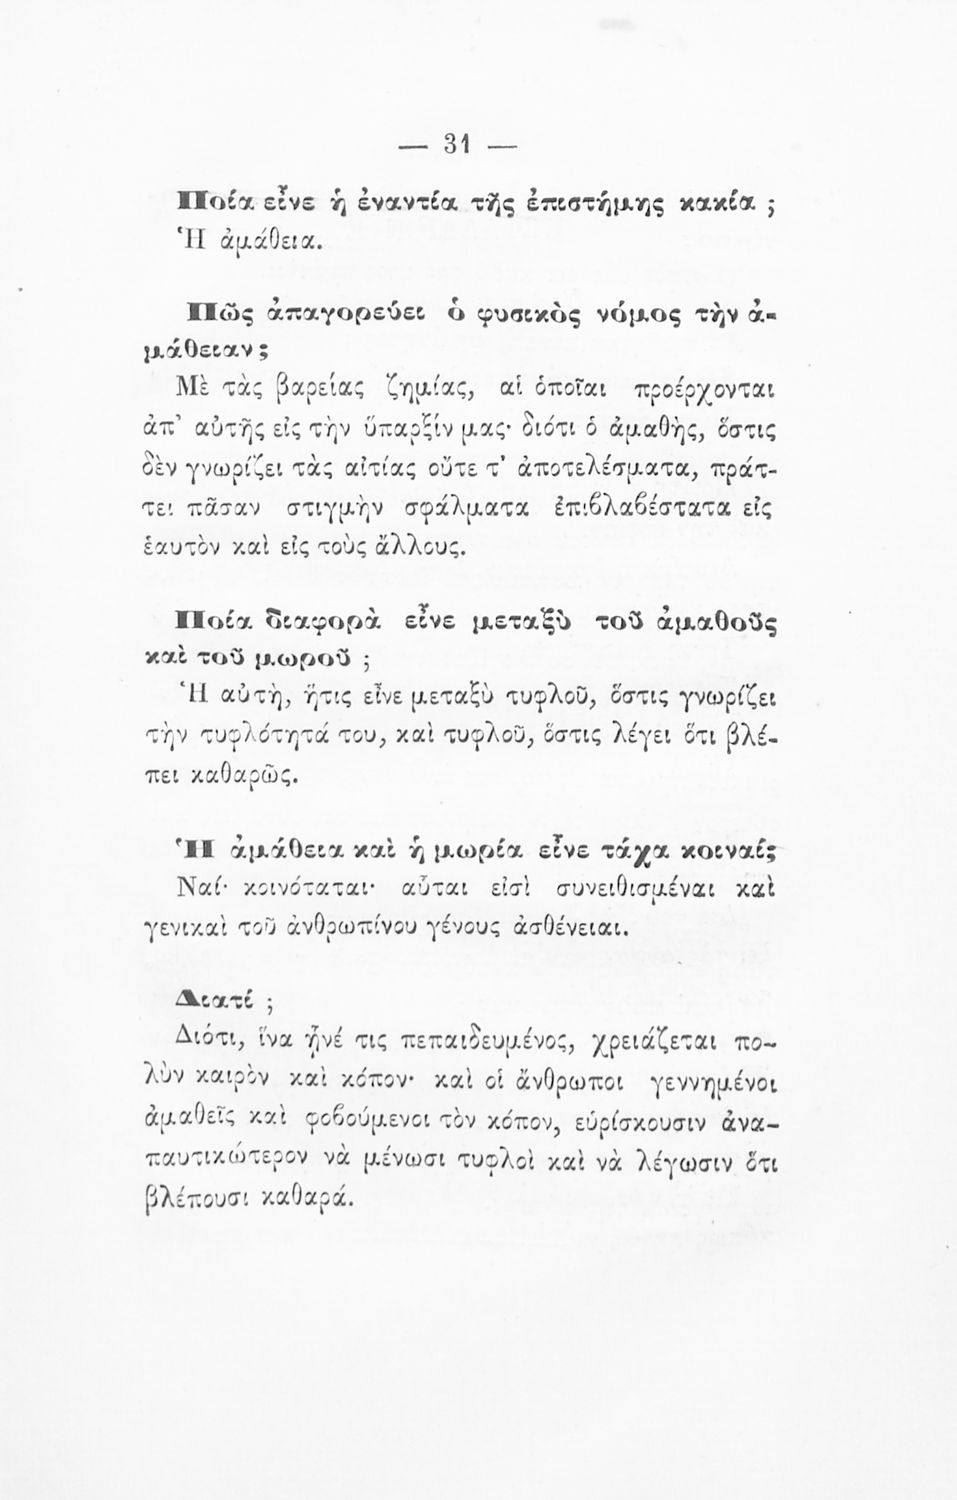 — 31 —
Ποία εἶνε ἡ ἐναντία τῆς ἐπιστήμης κακία ;
Ἡ ἀμάθεια.
Πῶς ἀπαγορεύει ὁ φυσικὸς νόμος τὴν ἀ-
μάθειαν ;
Μὲ τὰς βαρείας ζημίας, αἱ ὁποῖαι προέρχονται
ἀπ’ αὐτῆς εἰς τὴν ὕπαρξίν μας· διότι ὁ ἀμαθὴς, ὅστις
δὲν γνωρίζει τὰς αἰτίας οὔτε τ’ ἀποτελέσματα, πράτ-
τει πᾶσαν στιγμὴν σφάλματα ἐπιβλαβέστατα εἰς
ἑαυτὸν καὶ εἰς τοὺς ἄλλους.
Ποία διαφορὰ εἶνε μεταξὺ τοῦ ἀμαθοῦς
καὶ τοῦ μωροῦ ;
Ἡ αὐτὴ, ἥτις εἶνε μεταξὺ τυφλοῦ, ὅστις γνωρίζει
τὴν τυφλότητά του, καὶ τυφλοῦ, ὅστις λέγει ὅτι βλέ-
πει καθαρῶς.
Ἡ ἀμάθεια καὶ ἡ μωρία εἶνε τάχα κοιναί;
Ναί· κοινόταται· αὗται εἰσὶ συνειθισμέναι καὶ
γενικαὶ τοῦ ἀνθρωπίνου γένους ἀσθένειαι.
Διατί ;
Διότι, ἵνα ᾖνέ τις πεπαιδευμένος, χρειάζεται πο-
λὺν καιρὸν καὶ κόπον· καὶ οἱ ἄνθρωποι γεννημένοι
ἀμαθεῖς καὶ φοβούμενοι τὸν κόπον, εὑρίσκουσιν ἀνα-
παυτικώτερον νὰ μένωσι τυφλοὶ καὶ νὰ λέγωσιν ὅτι
βλέπουσι καθαρά.